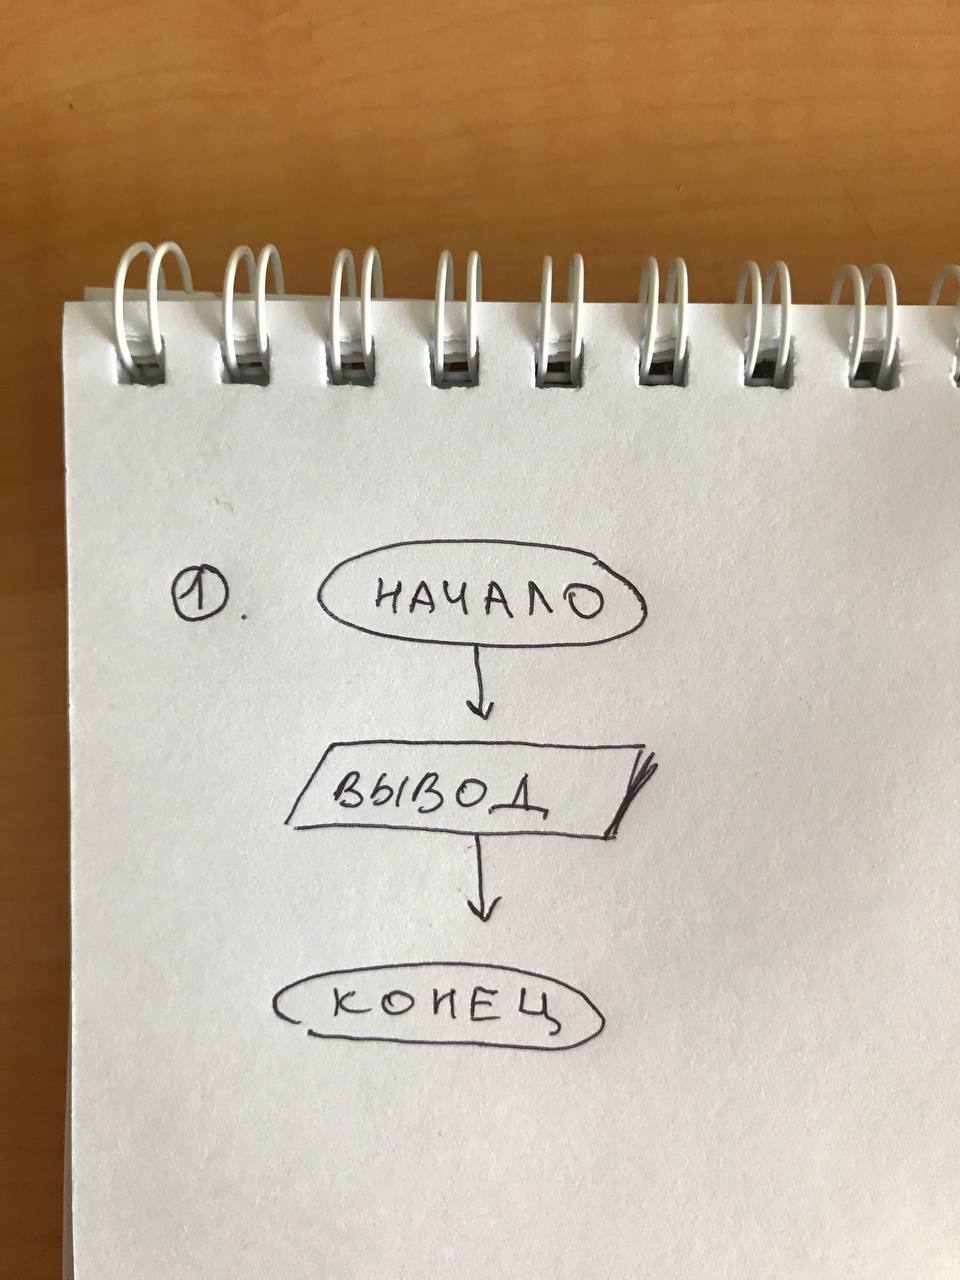 ①.
НАЧАЛО
ВЫВОД
КОНЕЦ